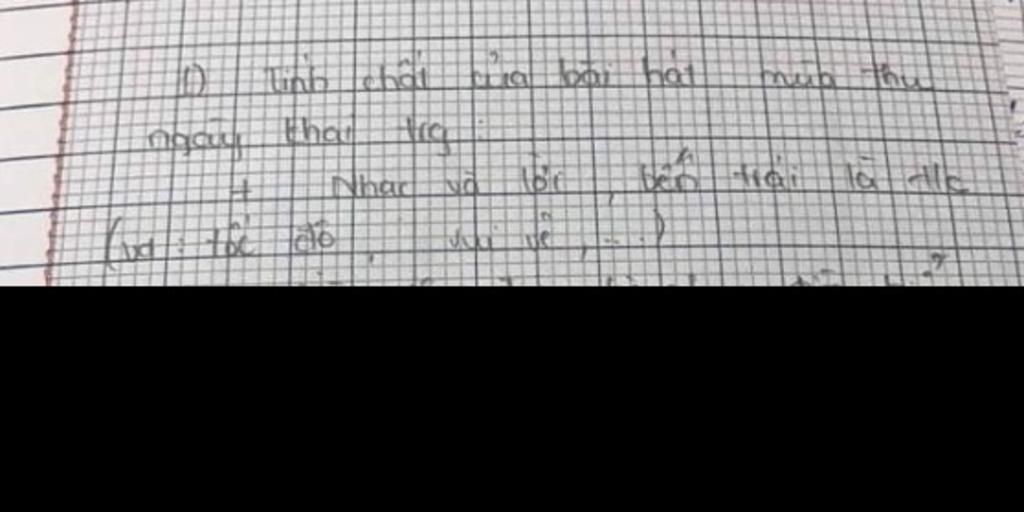 1) Tính chất của bài hát mùa thu
ngày khai trg :
+ Nhạc và lời, bên trái là
(vd : tốc độ, vui vẻ, ...)